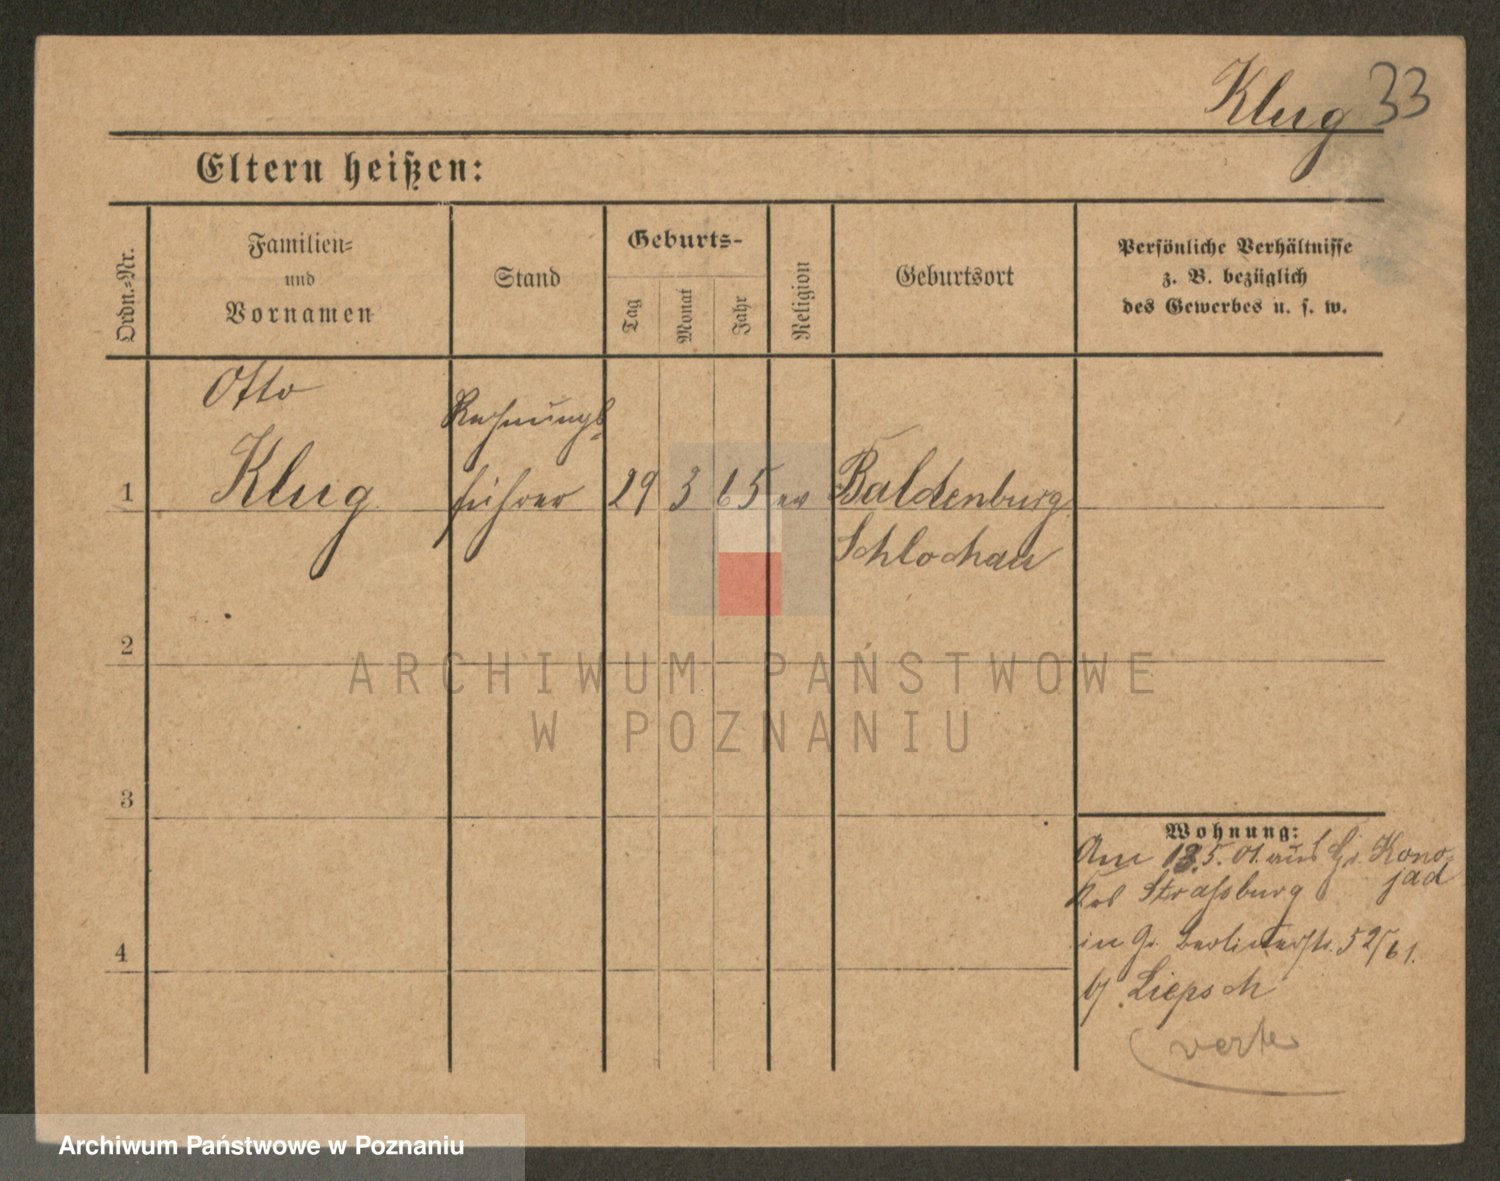 Klug 33
Eltern heißen:
Ordn.-Nr.
Familien-
und
Vornamen
Stand
Geburts-
Tag
Monat
Jahr
Religion
Geburtsort
Persönliche Verhältnisse
z. B. bezüglich
des Gewerbes u. s. w.
Otto
Rechnungs-
1 Klug führer 29 3 65 ev Baldenburg
Schlochau
2
ARCHIWUM PAŃSTWOWE
W POZNANIU
3
Wohnung:
Am 18.5.01. aus Gr. Kono-
jad
Krs Strassburg
in Gr. Berlinerstr. 52/61.
b/ Liepsch
4
verte
Archiwum Państwowe w Poznaniu